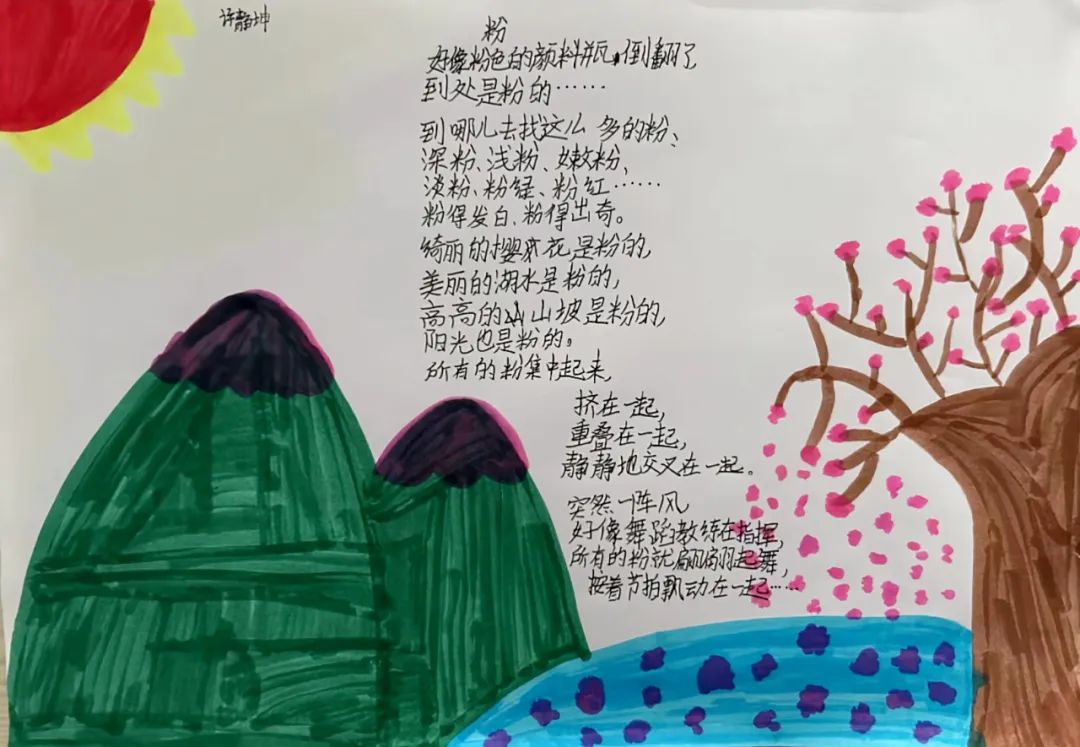 许静坤
粉
好像粉色的颜料瓶倒翻了,
到处是粉的……
到哪儿去找这么多的粉、
深粉、浅粉、嫩粉、
淡粉、粉绿、粉红……
粉得发白、粉得出奇。
绮丽的樱花是粉的,
美丽的湖水是粉的,
高高的山坡是粉的,
阳光也是粉的。
所有的粉集中起来,
挤在一起,
重叠在一起,
静静地交叉在一起。
突然一阵风
好像舞蹈教练在指挥,
所有的粉就翩翩起舞,
按着节拍飘动在一起……